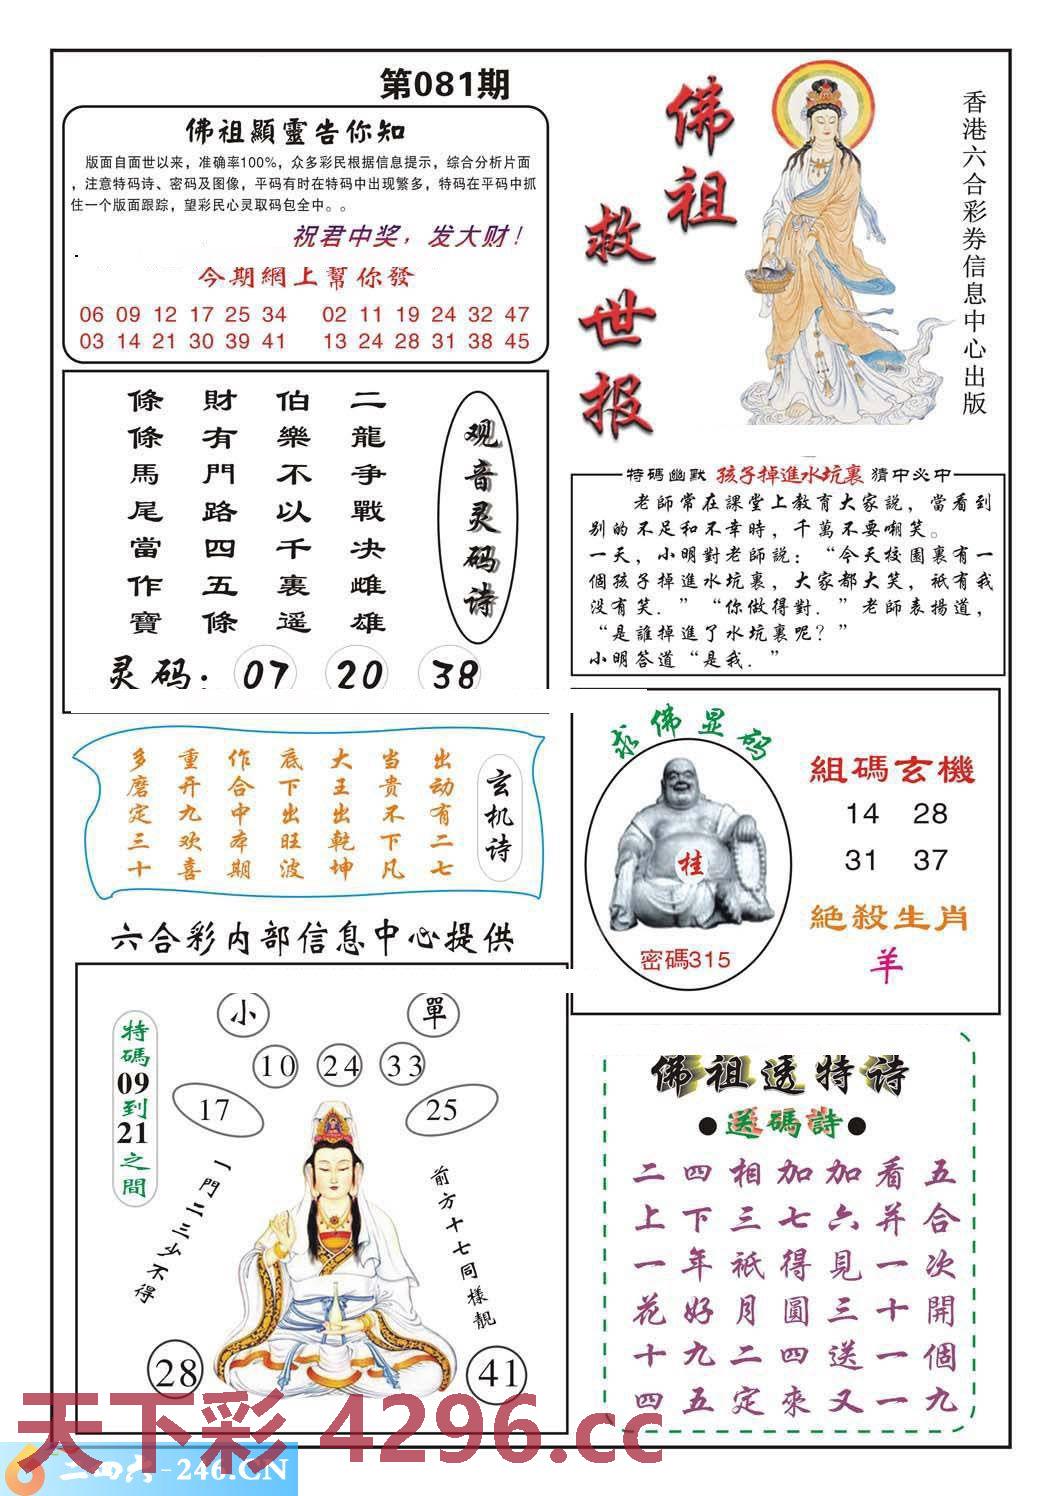 第081期
佛祖顯靈告你知
版面自面世以来，准确率100%，众多彩民根据信息提示，综合分析片面
，注意特码诗、密码及图像，平码有时在特码中出现繁多，特码在平码中抓
住一个版面跟踪，望彩民心灵取码包全中。。
祝君中奖，发大财！
今期網上幫你發
06 09 12 17 25 34 02 11 19 24 32 47
03 14 21 30 39 41 13 24 28 31 38 45
佛祖
救世报
香港六合彩券信息中心出版
观音灵码诗
二龍争戰决雌雄
伯樂不以千裏遥
財有門路四五條
條條馬尾當作寶
灵码：07 20 38
特碼幽默 孩子掉進水坑裏 猜中必中
老師常在課堂上教育大家説，當看到
别的不足和不幸時，千萬不要嘲笑。
一天，小明對老師説：“今天校園裏有一
個孩子掉進水坑裏，大家都大笑，祇有我
没有笑．”“你做得對．”老師表揚道，
“是誰掉進了水坑裏呢？”
小明答道“是我．”
玄机诗
出动有二七
当贵不下凡
大王出乾坤
底下出旺波
作合中本期
重开九欢喜
多磨定三十
六合彩内部信息中心提供
求佛显码
桂
密碼315
組碼玄機
14 28
31 37
絶殺生肖
羊
特碼09到21之間
小 單
10 24 33
17 25
一門二三少不得
前方十七同樣靚
28 41
佛祖透特诗
●送碼詩●
二四相加加看五
上下三七六并合
一年祇得見一次
花好月圓三十開
十九二四送一個
四五定來又一九
天下彩 4296.cc
二四六-246.CN